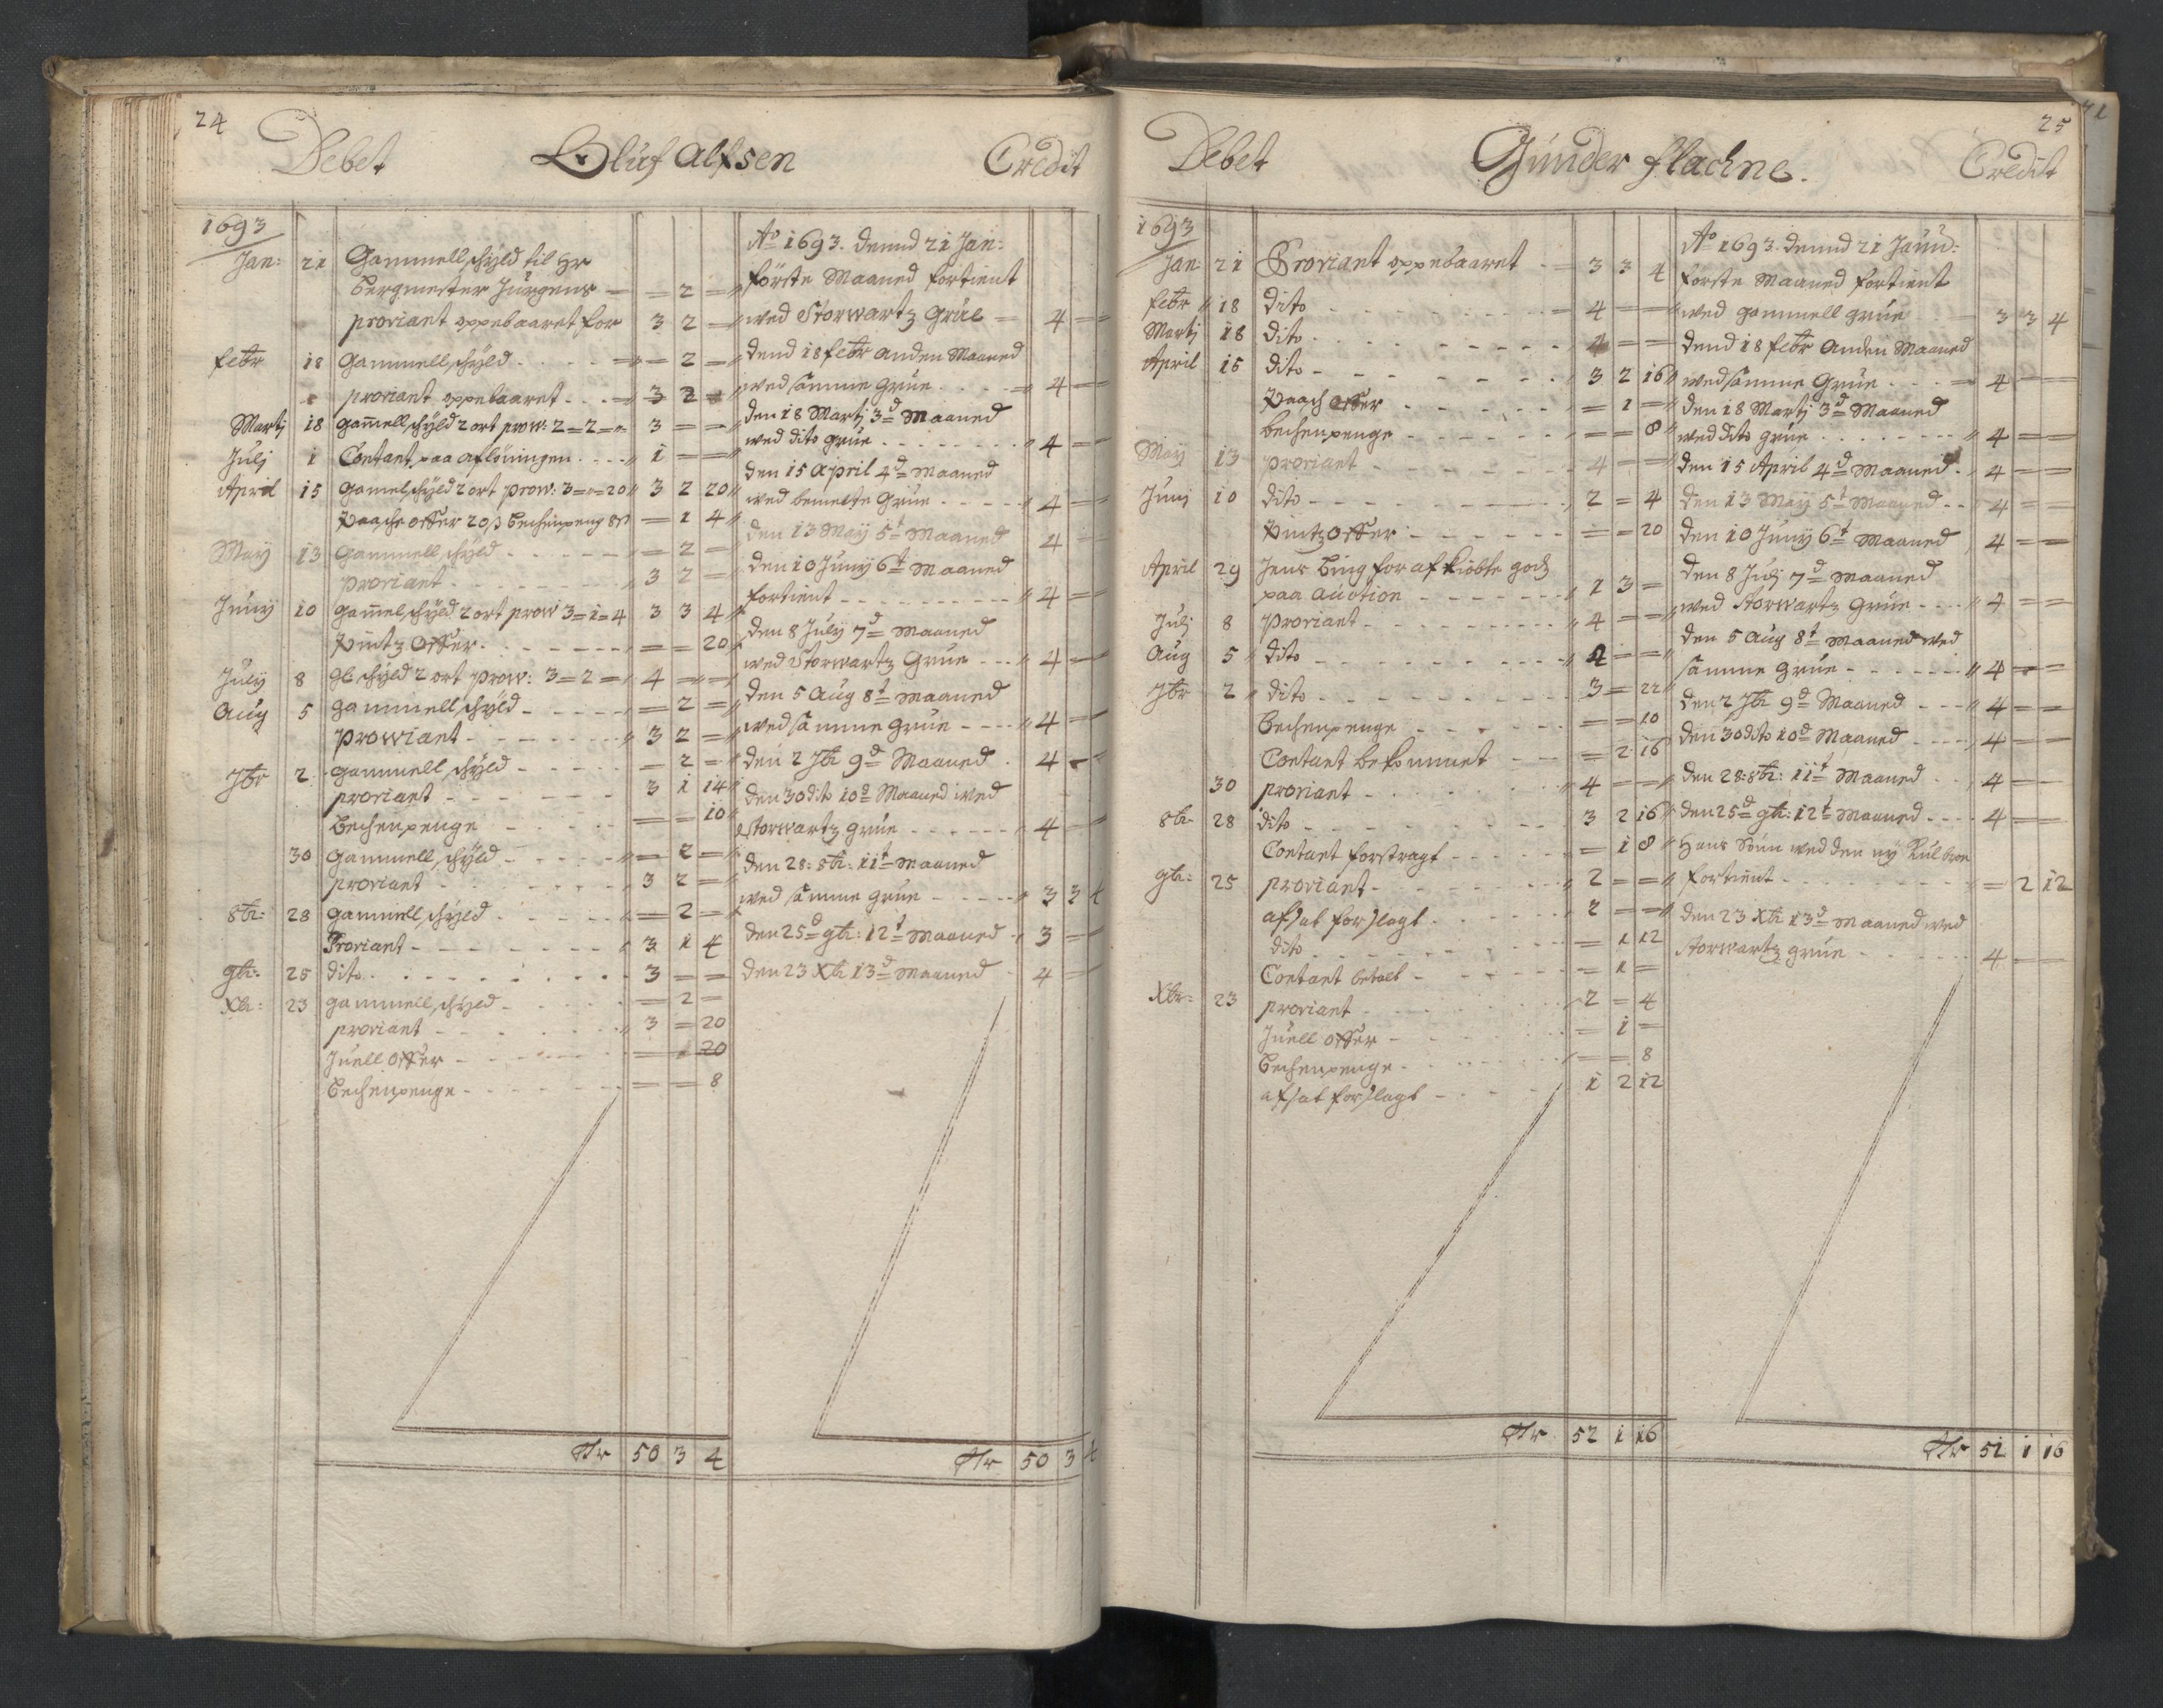 24
Debet Oluf Alfsen Credit
1693
Jan: 21 Gammell schyld til Hr
Bergmester Jürgens — = 2 =
proviant oppebaaret for 3 2 =
febr 18 Gammell schyld = 2 =
proviant oppebaaret 3 2 =
Martj 18 gamell schyld 2 ort prov: 2=2= 3 = =
Julj 1 Contant paa aflöningen 1 = =
April 15 gamel schyld 2 ort prow: 3==20 3 2 20
Paasche offer 20 β bechenpeng 8 β = 1 4
May 13 gammell schyld = 2 =
proviant 3 2 =
Juny 10 gamel schyld 2 ort prow 3=1=4 3 3 4
Pintz offer = = 20
July 8 gl schyld 2 ort prow: 3=2= 4 = =
Aug 5 gammell schyld = 2 =
prowiant 3 2 =
7br 2 gammell schyld = 2 =
proviant 3 1 14
bechenpenge = = 10
30 gammell schyld = 2 =
proviant 3 2 =
8br: 28 gammell schyld = 2 =
Proviant 3 1 4
9br: 25 dito 3 = =
Xbr: 23 gammell schyld = 2 =
proviant 3 = 20
Juell offer = = 20
bechenpenge = = 8
Rdr 50 3 4
Ao 1693. dennd 21 Jan:
förste Maaned fortient
wed Storwartz Grue 4 = =
dend 18 febr anden Maaned
wed samme grue 4 = =
den 18 Martj 3d Maaned
wed dito grue 4 = =
den 15 april 4d Maaned
wed bemelte grue 4 = =
den 13 May 5t Maaned 4 = =
den 10 Juny 6t Maaned
fortient 4 = =
den 8 July 7d Maaned
wed Storwartz Grue 4 = =
den 5 Aug 8t Maaned
wed samme grue 4 = =
den 2 7br 9d Maaned 4 = =
den 30 dito 10d Maaned wed
Storwartz grue 4 = =
den 28: 8br: 11t Maaned
wed samme grue 3 3 4
den 25d 9br: 12t Maaned 3 = =
den 23 Xbr 13d Maaned 4 = =
Rdr 50 3 4
25
Debet Gunder flachne. Credit
1693
Jan: 21 Proviant oppebaaret 3 3 4
febr 18 dito 4 = =
Martj 18 dito 4 = =
April 15 dito 3 2 16
Paasch offer = 1 =
bechenpenge = = 8
May 13 proviant 4 = =
Junj 10 dito 2 = 4
Pintz offer = = 20
April 29 Jens Bing for af kiöbte gods
paa auction 1 3 =
Julj 8 proviant 4 = =
Aug 5 dito 4 = =
7br 2 dito 3 = 22
bechenpenge = = 10
Contant bekommet = 2 16
30 proviant 4 = =
8br 28 dito 3 2 16
Contant forstragt = 1 8
9br: 25 proviant 2 = =
afsat forslagt 2 = =
dito = 1 12
Contant betalt = 1 =
Xbr: 23 proviant 2 = 4
Juell offer = 1 =
bechenpenge = = 8
afsat forslagt 1 2 12
Rdr 52 1 16
Ao 1693. dennd 21 Janu:
förste Maaned fortient
wed gammell grue 3 3 4
dend 18 febr anden Maaned
wed samme Grue 4 = =
den 18 Martj 3d Maaned
wed dito grue 4 = =
den 15 April 4d Maaned 4 = =
den 13 May 5t Maaned 4 = =
den 10 Juny 6t Maaned 4 = =
den 8 Julj 7d Maaned
wed Storwartz Grue 4 = =
den 5 Aug 8t Maaned wed
samme grue 4 = =
den 2 7br 9d Maaned 4 = =
den 30 dito 10d Maaned 4 = =
den 28: 8br: 11t Maaned 4 = =
den 25d 9br: 12t Maaned 4 = =
Hans Sönn wed den ny
fortient = 2 12
den 23 Xbr 13d Maaned wed
Storwartz grue 4 = =
Rdr 52 1 16